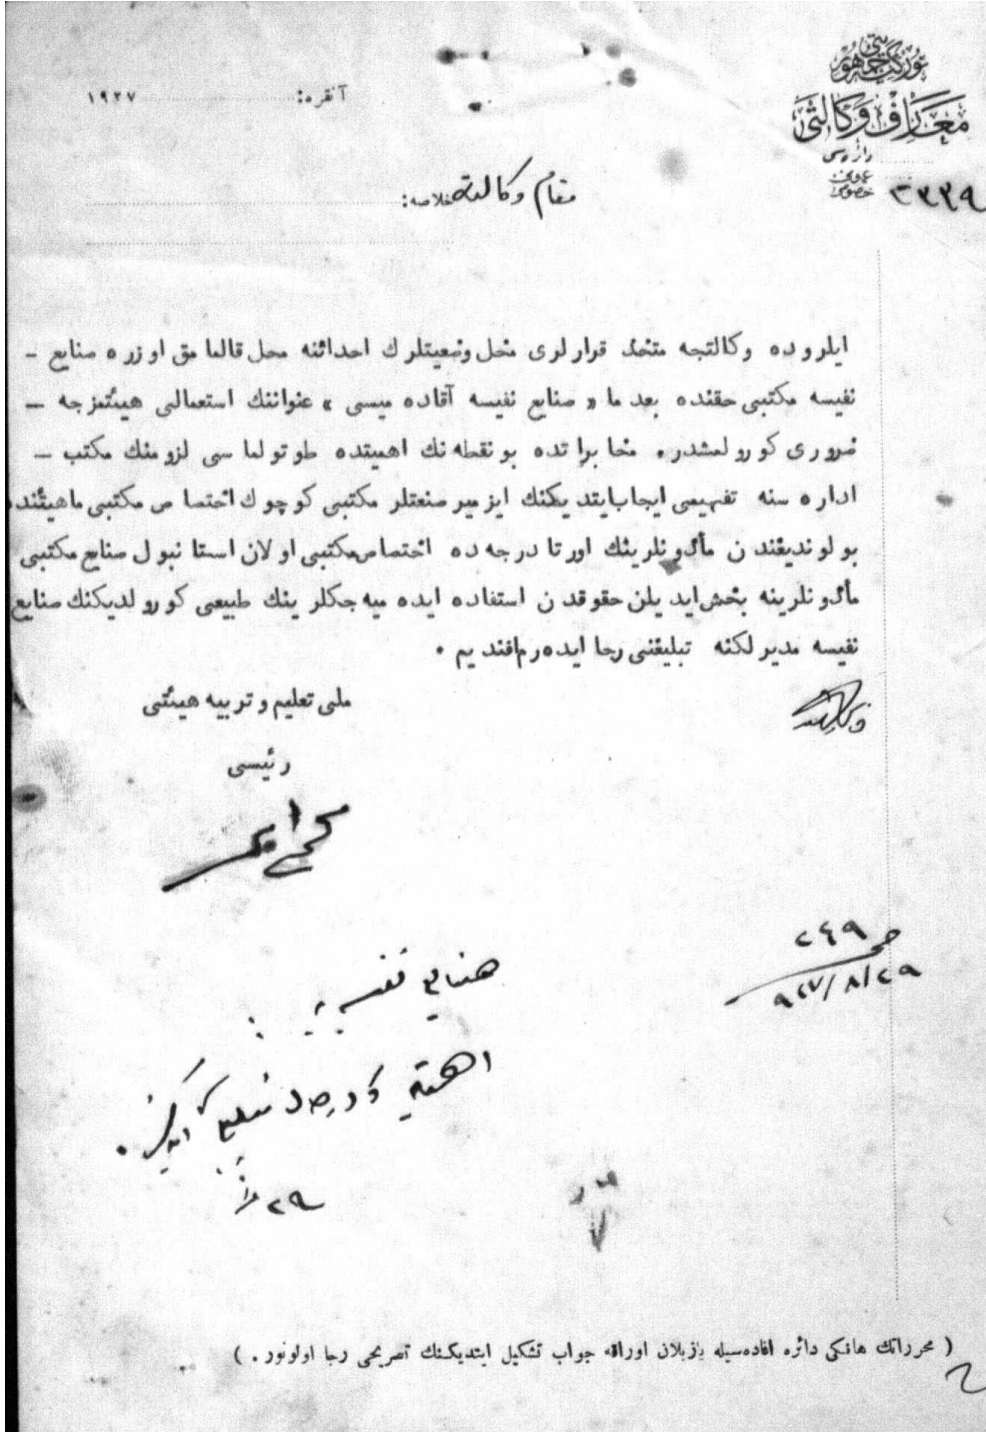 تورکیه جمهوریتی
معارف وکالتی
دائره‌سی
عمومی
خصوصی ٢٣٣٩
آنقره: ١٩٢٧
مقام وکالته
خلاصه:
ایلروده وکالتجه متخذ قرارلری مخل وضعیتلرك احداثنه محل قالمامق اوزره صنایع -
نفیسه مکتبی حقنده بعدما « صنایع نفیسه آقاده‌میسی » عنواننك استعمالی هیئتمزجه -
ضروری کورولمشدر. مخابراتده بونقطه‌نك اهمیتده طوتولماسی لزومنك مکتب -
اداره‌سنه تفهیمی ایجاب‌ایتدیکنك ایزمیر صنعتلر مکتبی کوچوك اختصاص مکتبی ماهیتنده
بولوندیغندن مأذونلرینك اورتا درجه‌ده اختصاص‌مکتبی اولان استانبول صنایع مکتبی
مأذونلرینه بخش‌ایدیلن حقوقدن استفاده ایده‌میه‌جکلرینك طبیعی کورولدیکنك صنایع
نفیسه مدیرلکنه تبلیغنی رجا ایده‌رم‌افندیم .
ملی تعلیم و تربیه هیئتی
رئیسی
محمد امین
٢٤٩
٩٢٧/٨/٢٩
صنایع نفیسه‌یه :
اهمیتله
٢٩
( محرراتك هانکی دائره افاده‌سیله یازیلان اوراقه جواب تشکیل ایتدیکنك تصریحی رجا اولونور . )